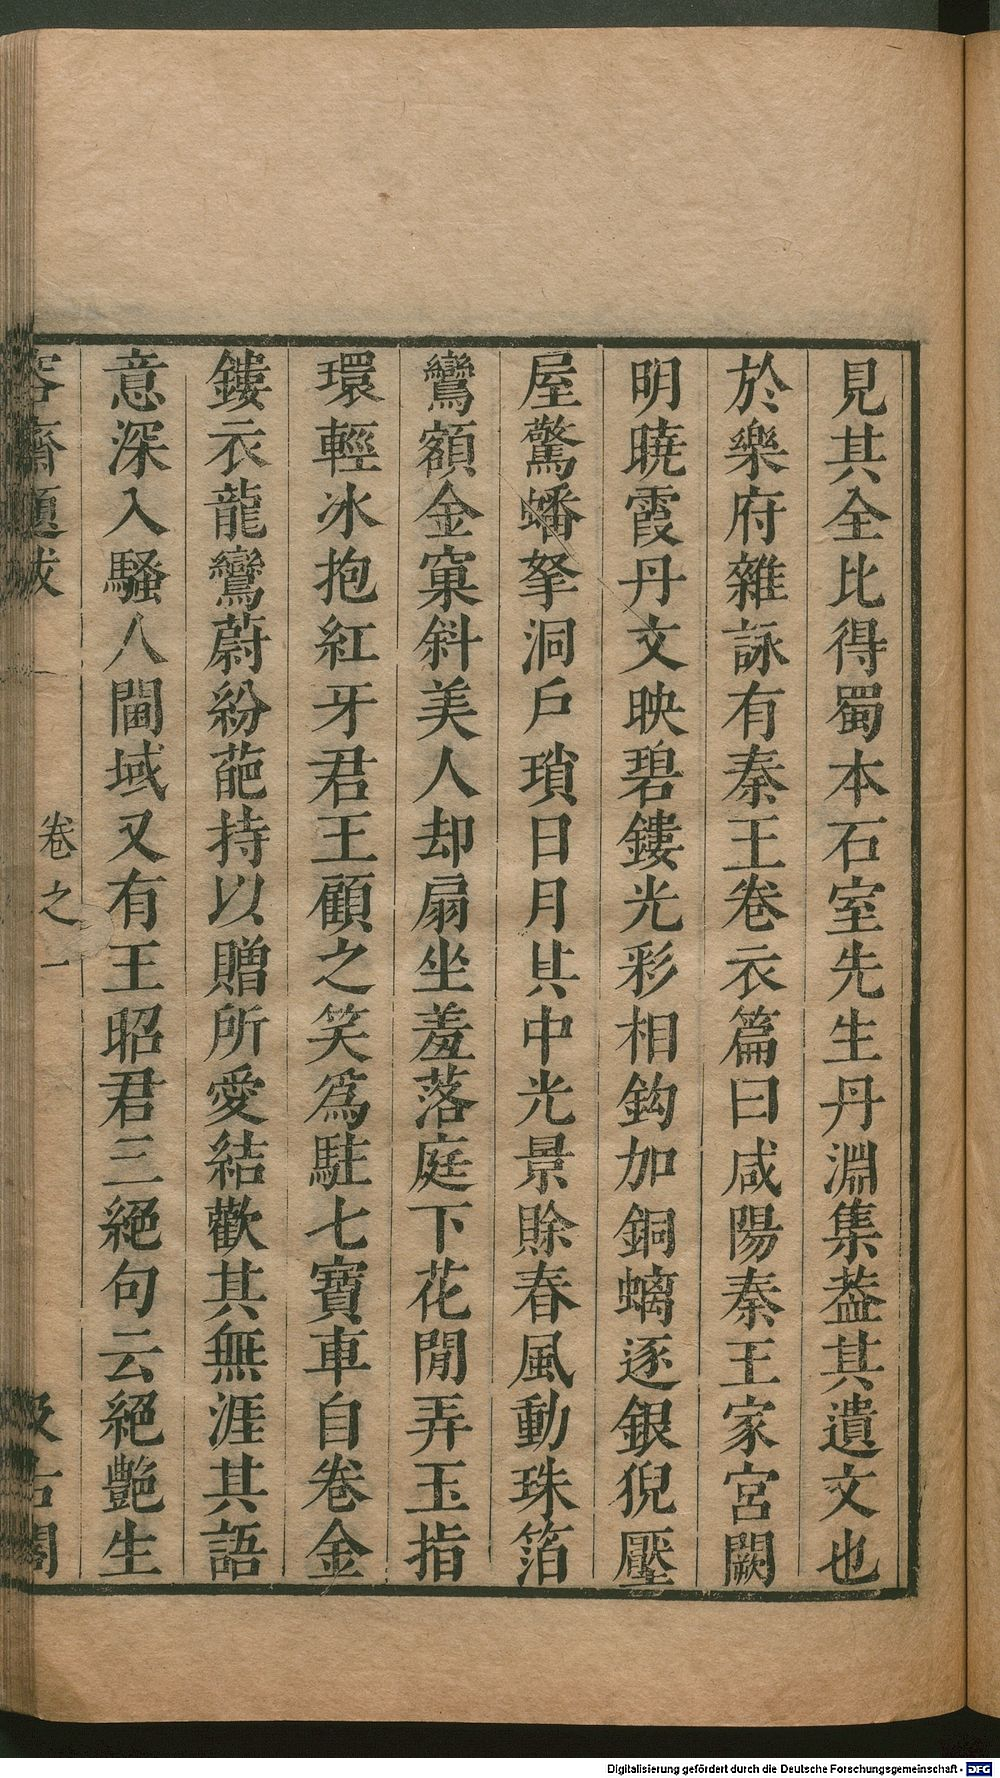 見其全比得蜀本石室先生丹淵集葢其遺文也
於樂府雜詠有秦王卷衣篇曰咸陽秦王家宮闕
明曉霞丹文映碧鏤光彩相鈎加銅螭逐銀猊壓
屋驚蟠拏洞戶瑣日月其中光景賖春風動珠箔
鸞額金窠斜美人却扇坐羞落庭下花閒弄玉指
環輕冰抱紅牙君王顧之笑爲駐七寶車自卷金
鏤衣龍鸞蔚紛葩持以贈所愛結歡其無涯其語
意深入騷人閫域又有王昭君三絕句云絕艷生
容齋題跋 卷之一 汲古閣
Digitalisierung gefördert durch die Deutsche Forschungsgemeinschaft - DFG